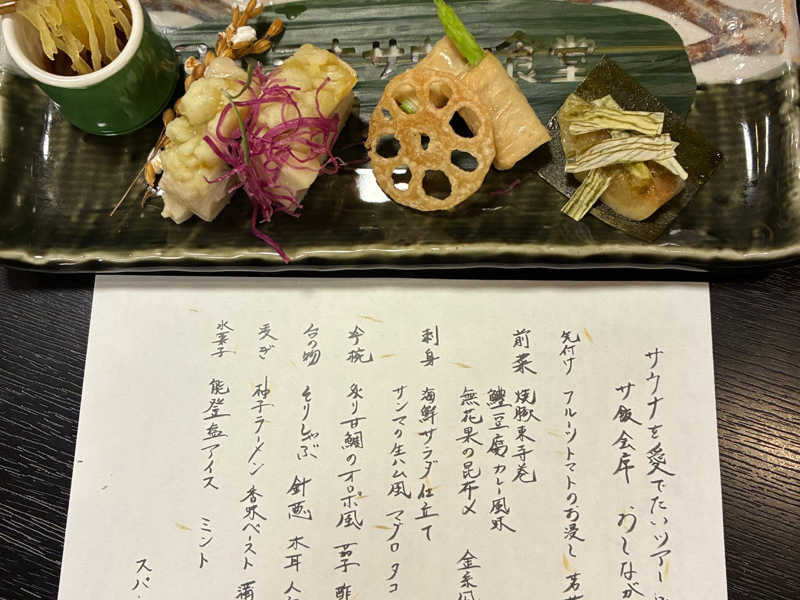 サウナを愛でたいツアー in
サ飯会席 おしなが
先付け フルーツトマトのお浸し
前菜 焼豚東寺巻
鰹豆腐カレー風味
無花果の昆布〆 金糸瓜
刺身 海鮮サラダ仕立て
サンマの生ハム風 マグロ タコ
冷椀 炙り甘鯛のオロポ風 茄子 酢
台の物 そりしゃぶ 針葱 木耳 人
麦ぎ 柚子ラーメン 香味ペースト
水菓子 能登塩アイス ミント
スパ